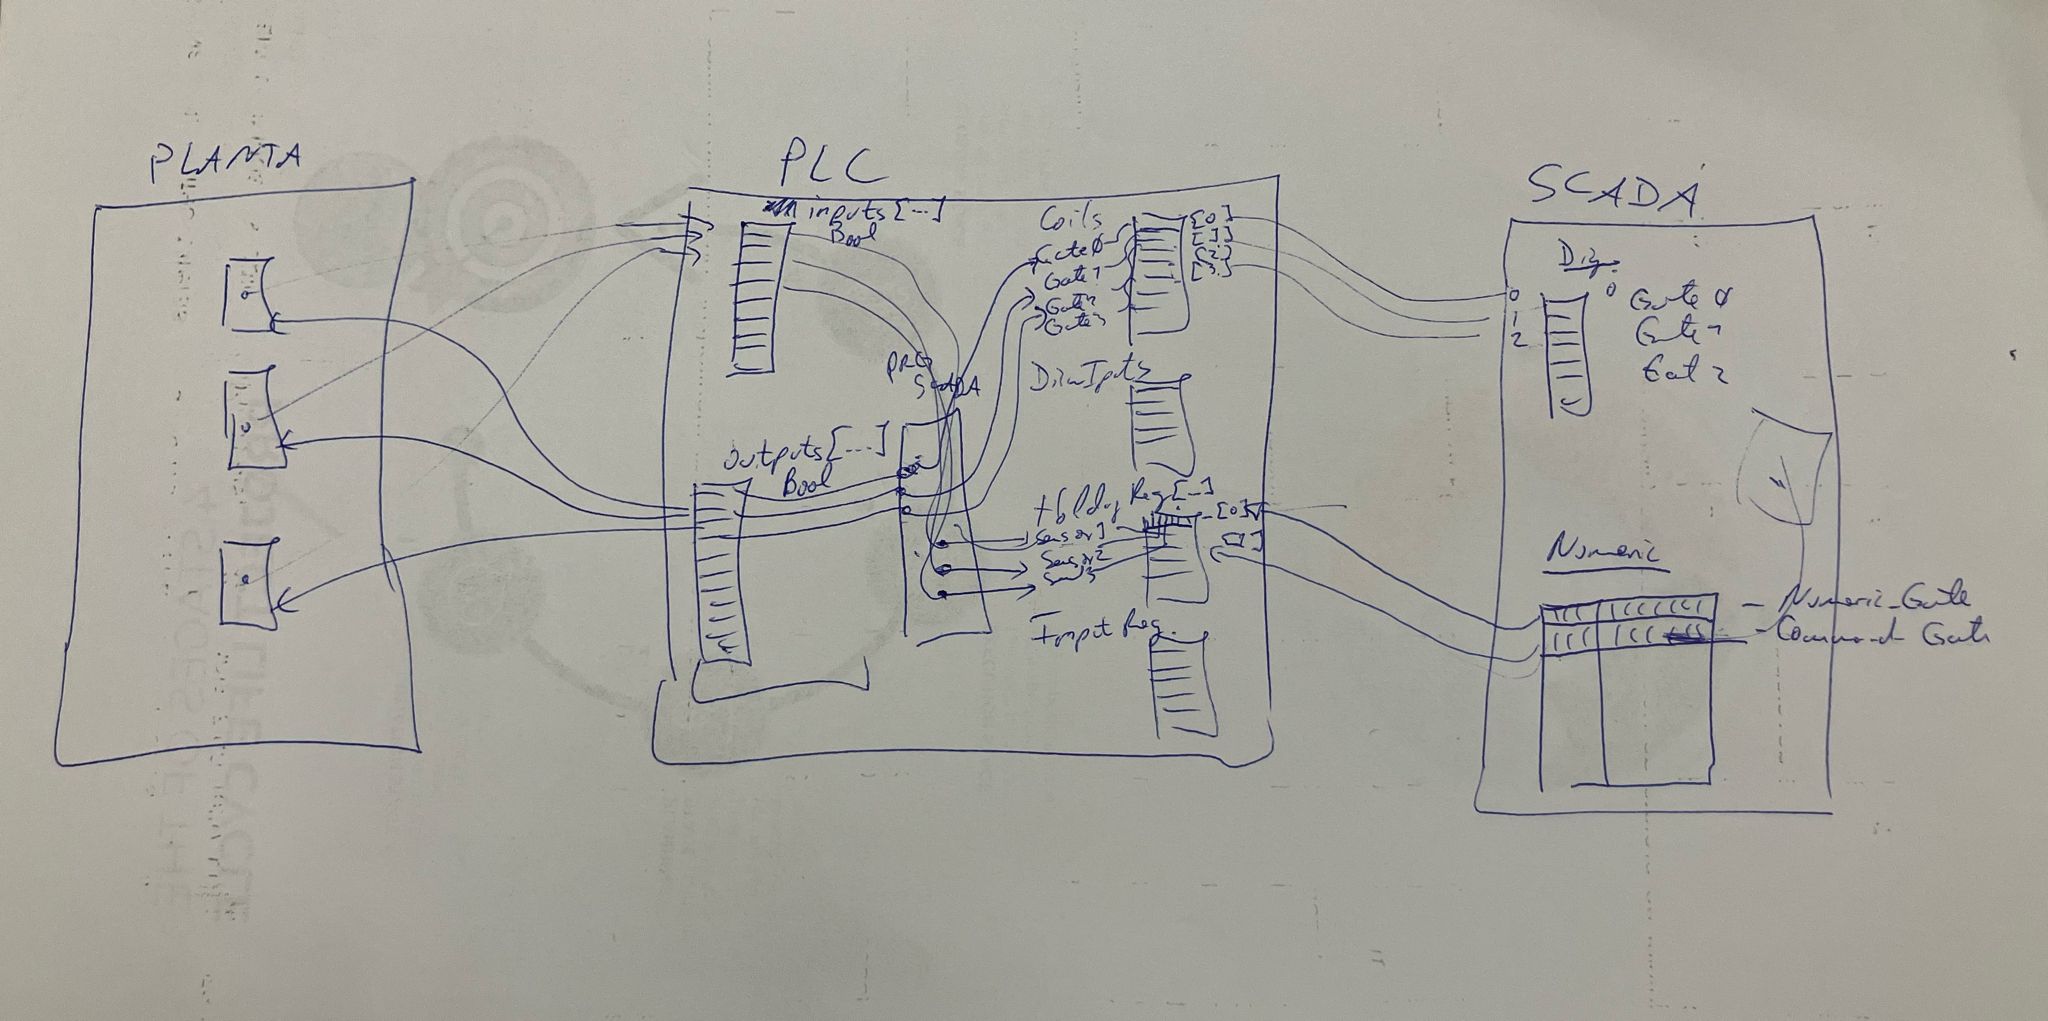 PLANTA
PLC
inputs[...]
Bool
outputs[...]
Bool
PRG
SCADA
Coils
Gate 0
Gate 1
Gate 2
Gate 3
[0]
[1]
[2]
[3]
Reg[...]
Sensor1
Sensor2
[0]
[1]
Input Reg.
SCADA
Dig.
0
1
2
0
Gate 0
Gate 1
Gat 2
Numeric
- Numeric_Gate
- Command Gate